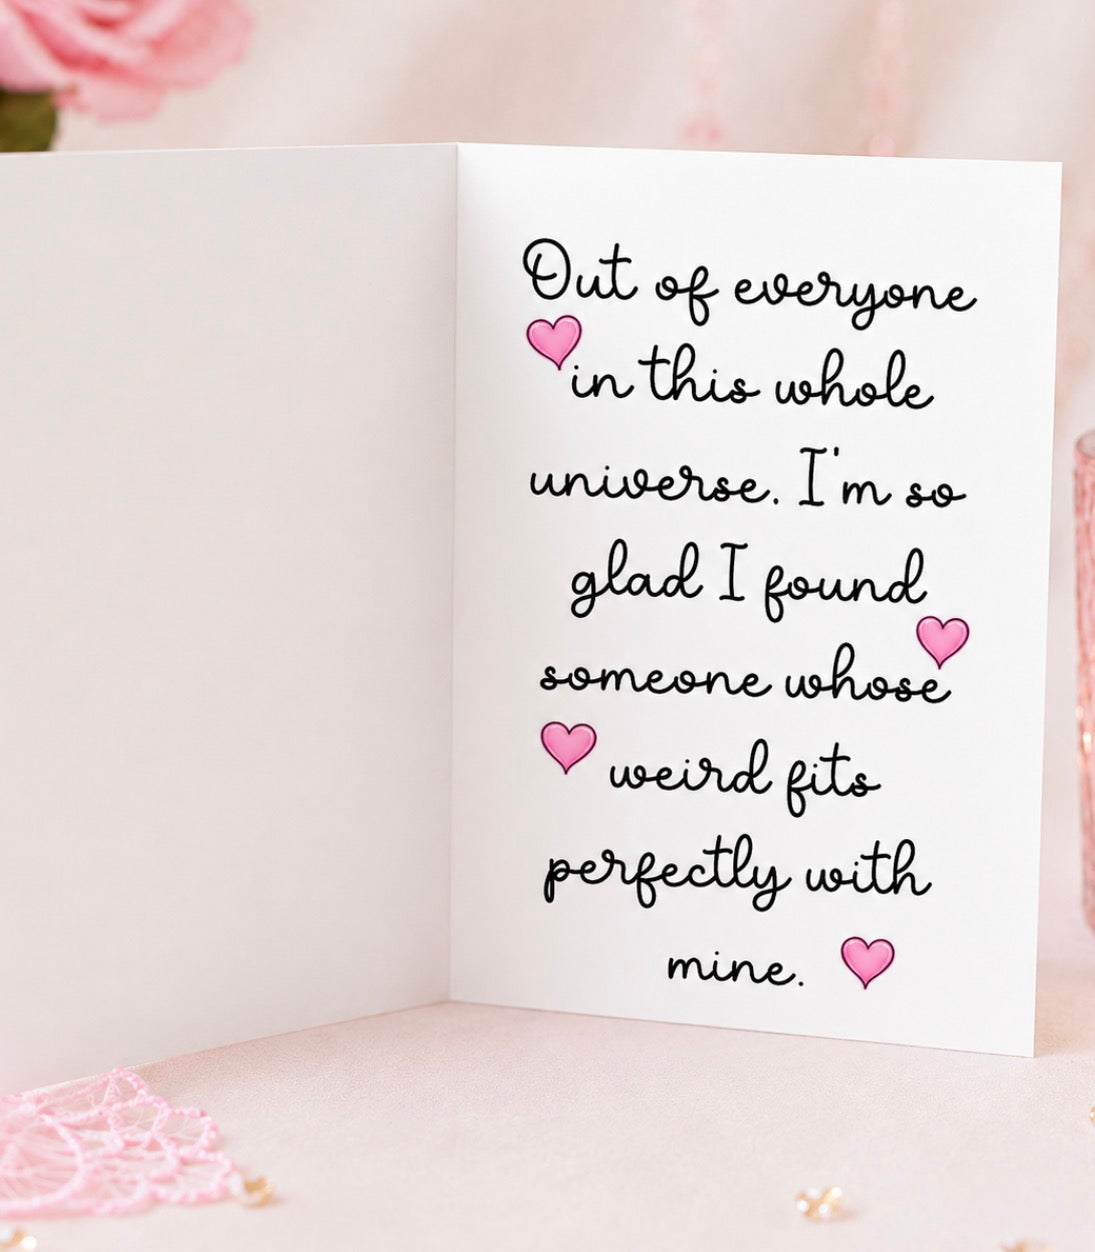 Out of everyone
in this whole
universe. I'm so
glad I found
someone whose
weird fits
perfectly with
mine.